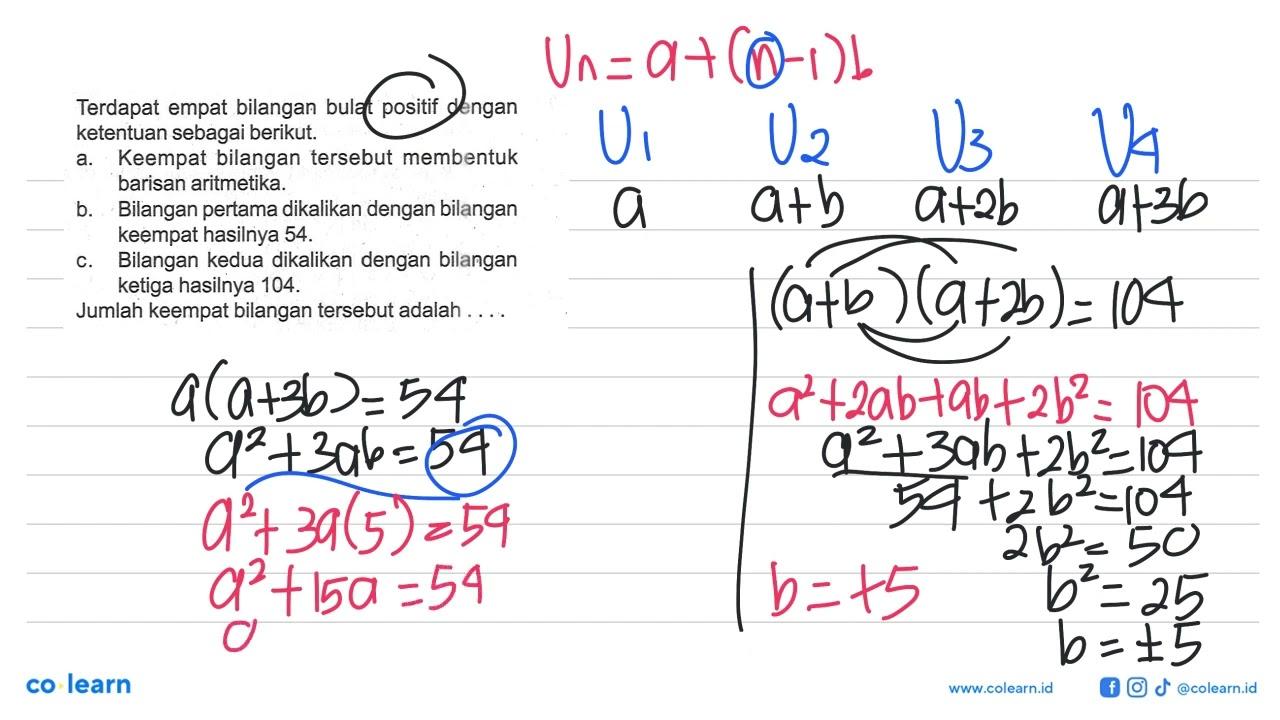 Un = a + (n - 1) b
Terdapat empat bilangan bulat positif dengan
ketentuan sebagai berikut.
a. Keempat bilangan tersebut membentuk
barisan aritmetika.
b. Bilangan pertama dikalikan dengan bilangan
keempat hasilnya 54.
c. Bilangan kedua dikalikan dengan bilangan
ketiga hasilnya 104.
Jumlah keempat bilangan tersebut adalah . . . .
U1 U2 U3 U4
a a+b a+2b a+3b
(a+b)(a+2b) = 104
a² + 2ab + ab + 2b² = 104
a² + 3ab + 2b² = 104
54 + 2b² = 104
2b² = 50
b² = 25
b = ± 5
b = +5
a(a+3b) = 54
a² + 3ab = 54
a² + 3a(5) = 54
a² + 15a = 54
co learn
www.colearn.id
@colearn.id